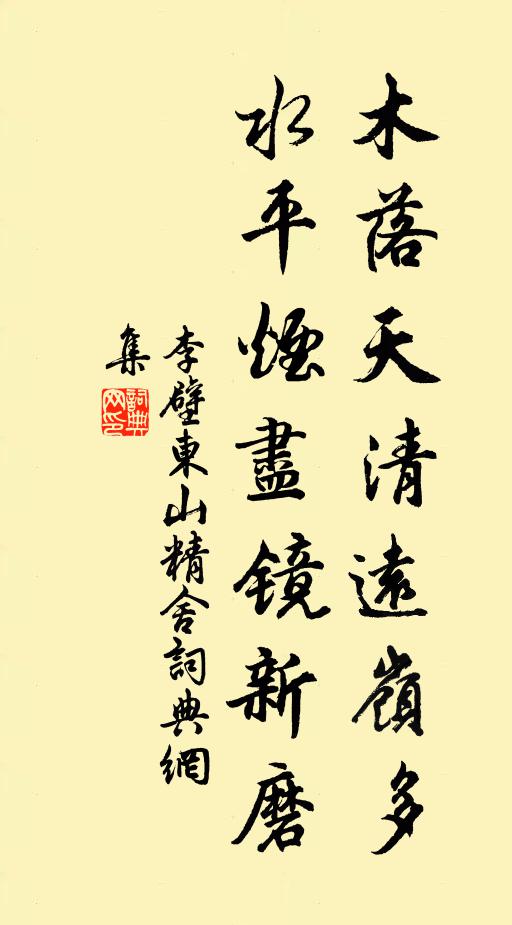 木落天清遠嶺多
水平煙盡鏡新磨
李壁東山精舍詞典網
集
詞典
网印